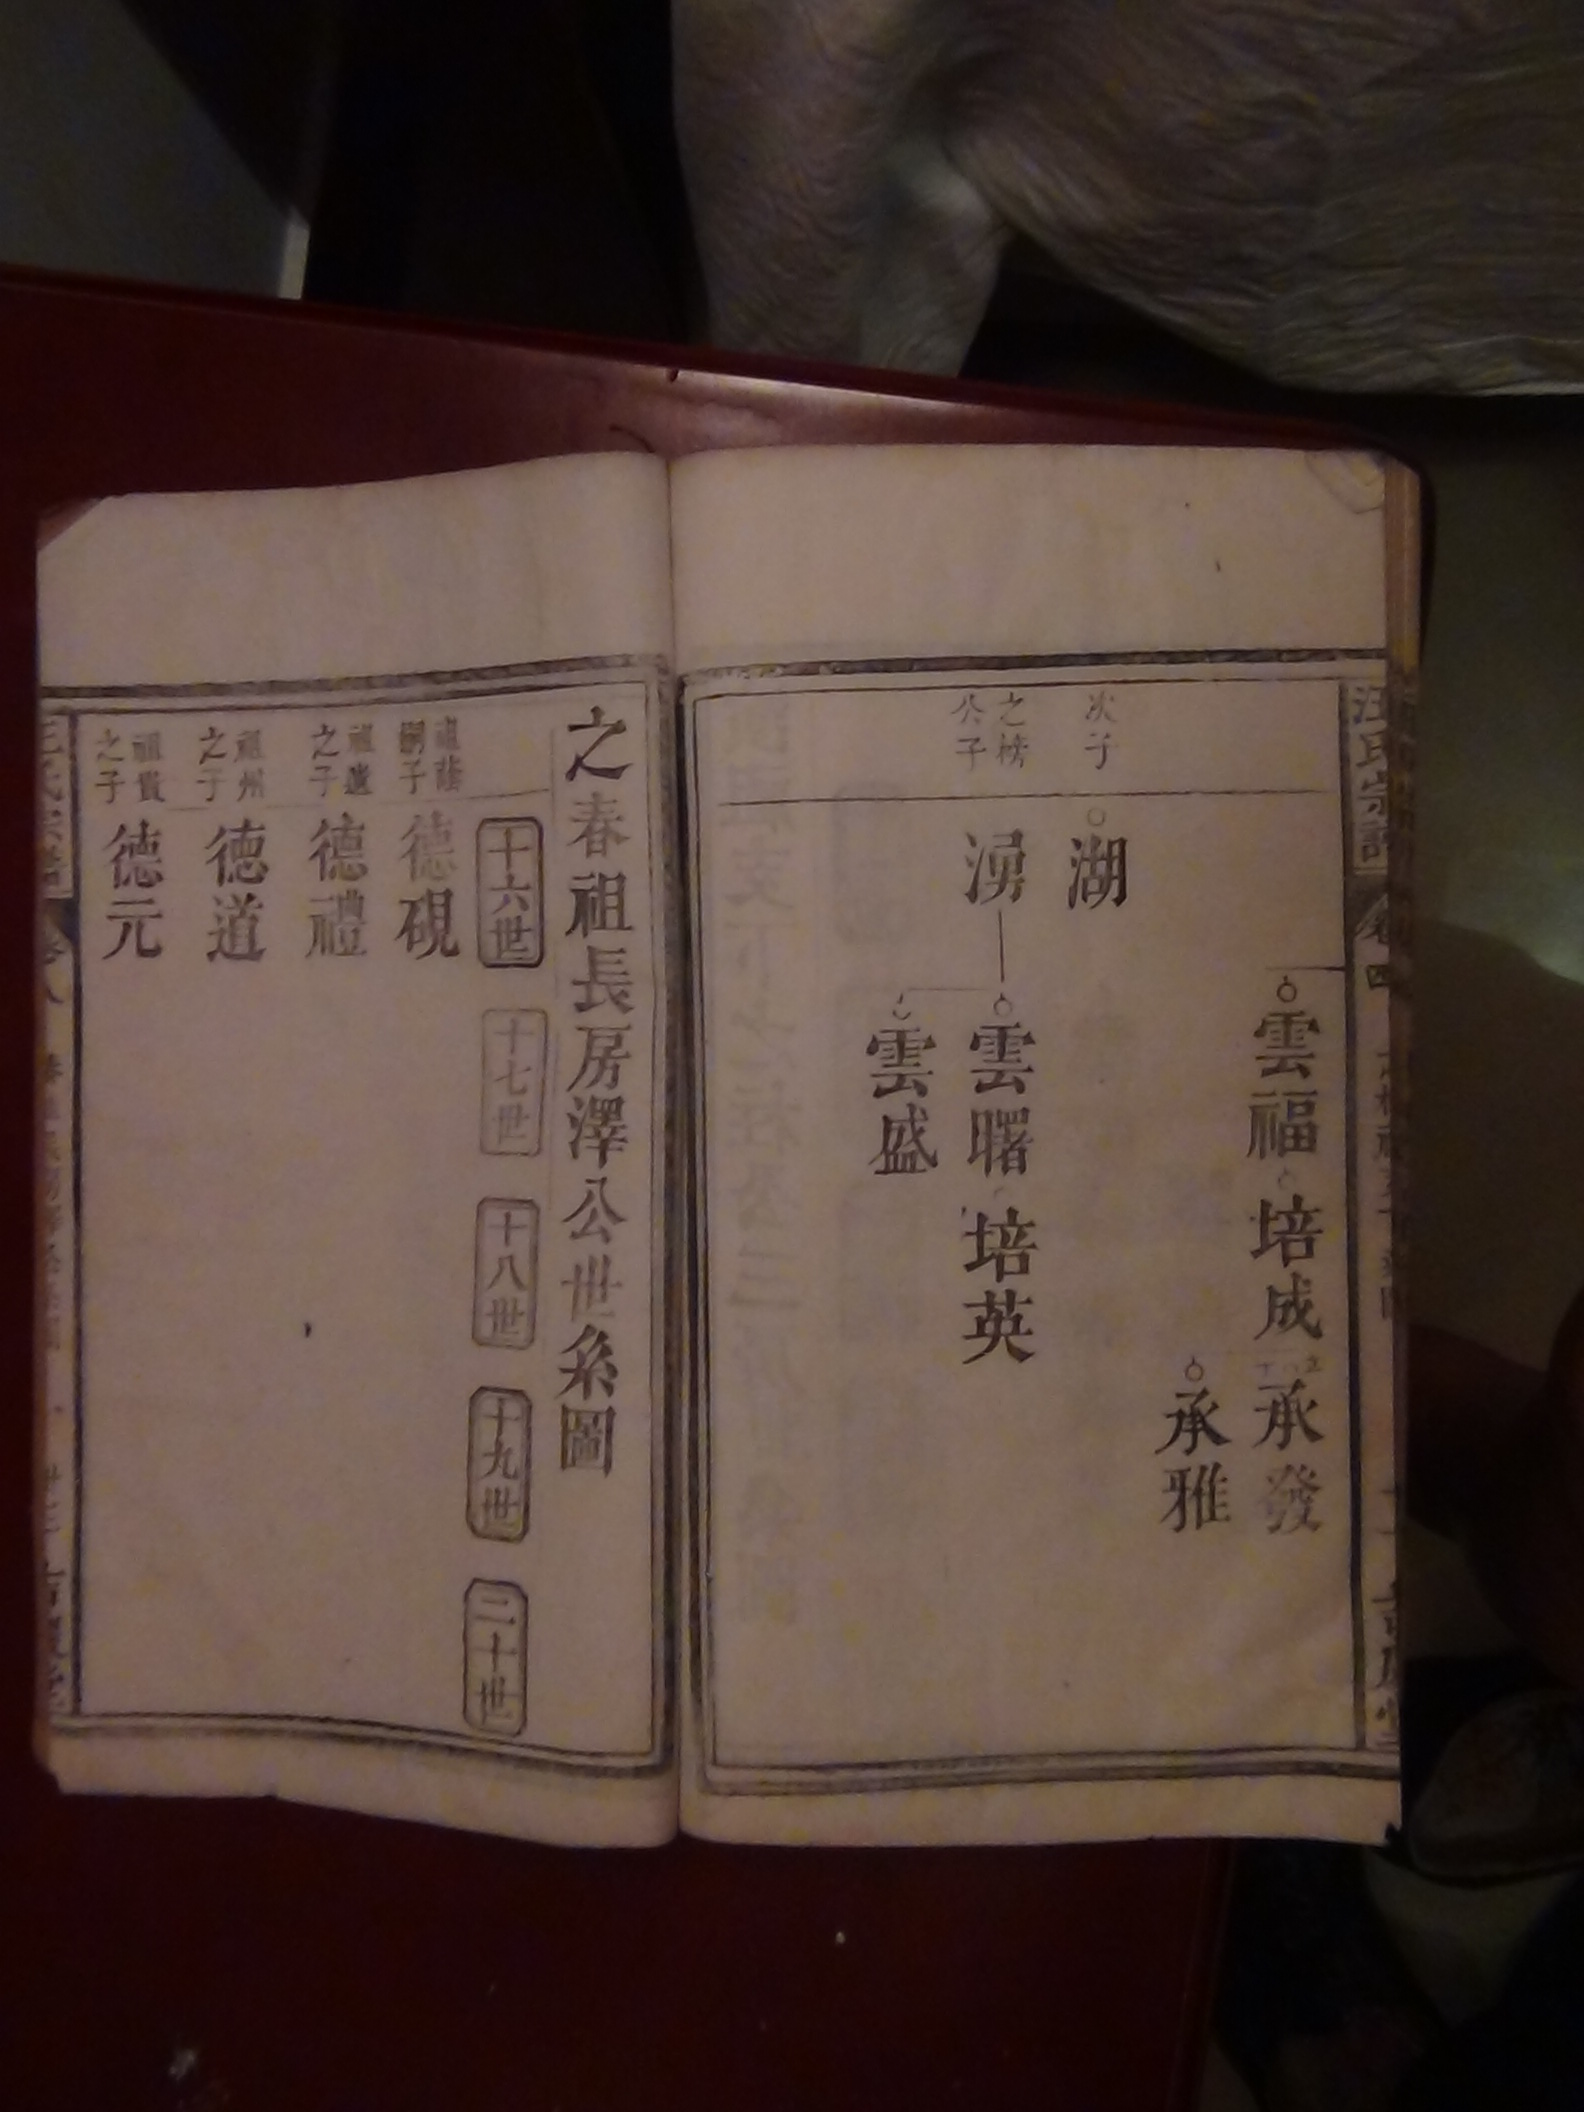 汪氏宗譜
卷四
雲福
培成
承發
承雅
次子
湖
之榜
公子
湧
雲曙
培英
雲盛
之春祖長房澤公世系圖
十六世
十七世
十八世
十九世
二十世
祖蔭
嗣子
德硯
之子
德禮
祖州
之子
德道
祖貴
之子
德元
卷八